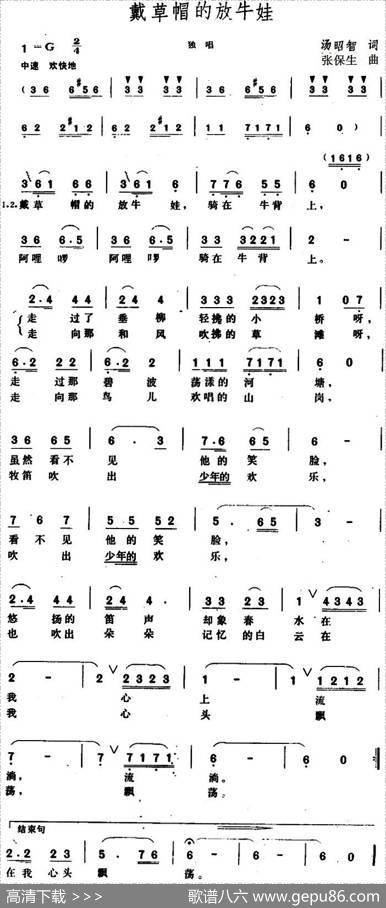 戴草帽的放牛娃
1=G 2/4
独唱
汤昭智 词
中速 欢快地
张保生 曲
(3 6 | 6 #5 6 | 3 3 | 3 6 6 #5 6 | 3 3 3 |
6 2 2 #1 2 | 6 2 2 #1 2 | 1 1 7171 | 6 0 ) |
(1616)
3 61 6 6 | 3 61 6 | 776 5 5 | 6 0 |
1.2.戴草 帽的 放牛 娃, 骑在 牛背 上,
3 6 6·5 | 3 6 6·5 | 3 3 3221 | 2 - |
阿哩 啰 阿哩 啰 骑在 牛背 上。
2·4 4 4 | 2·4 4 | 3 3 3 2323 | 1 0 7 |
走 过了 垂 柳 轻拂的 小 桥 呀,
走 向那 和 风 吹拂的 草 滩 呀,
6·2 2 2 | 6·2 2 | 1 1 1 7171 | 6 0 |
走 过那 碧 波 荡漾的 河 塘,
走 向那 鸟 儿 欢唱的 山 岗,
3 6 6 5 | 6 · 3 | 7·6 6 5 | 6 - |
虽然 看不 见 他的 笑 脸,
牧笛 吹 出 少年的 欢 乐,
7 6 7 | 5 5 5 2 | 5 · 6 5 | 3 - |
看 不 见 他的 笑 脸,
吹 出 少年的 欢 乐,
2·4 4 4 | 2 4 4 · | 3 3 2 3 | 1 ∨ 4343 |
悠 扬的 笛 声 却象 春 水 在
也 吹出 朵 朵 记忆 的白 云 在
2 - | 2 ∨ 2323 | 1 - | 1 ∨ 1212 |
我 心 上 流
我 心 头 飘
7 - | 7 ∨ 7171 | 6 - | 6 0 :‖
淌, 流 淌。
荡, 飘 荡。
结束句
2·2 2 3 | 5 · 7 6 | 6 - | 6 0 ‖
在我 心头 飘 荡。
高清下载 >>> 歌谱八六 www.gepu86.com